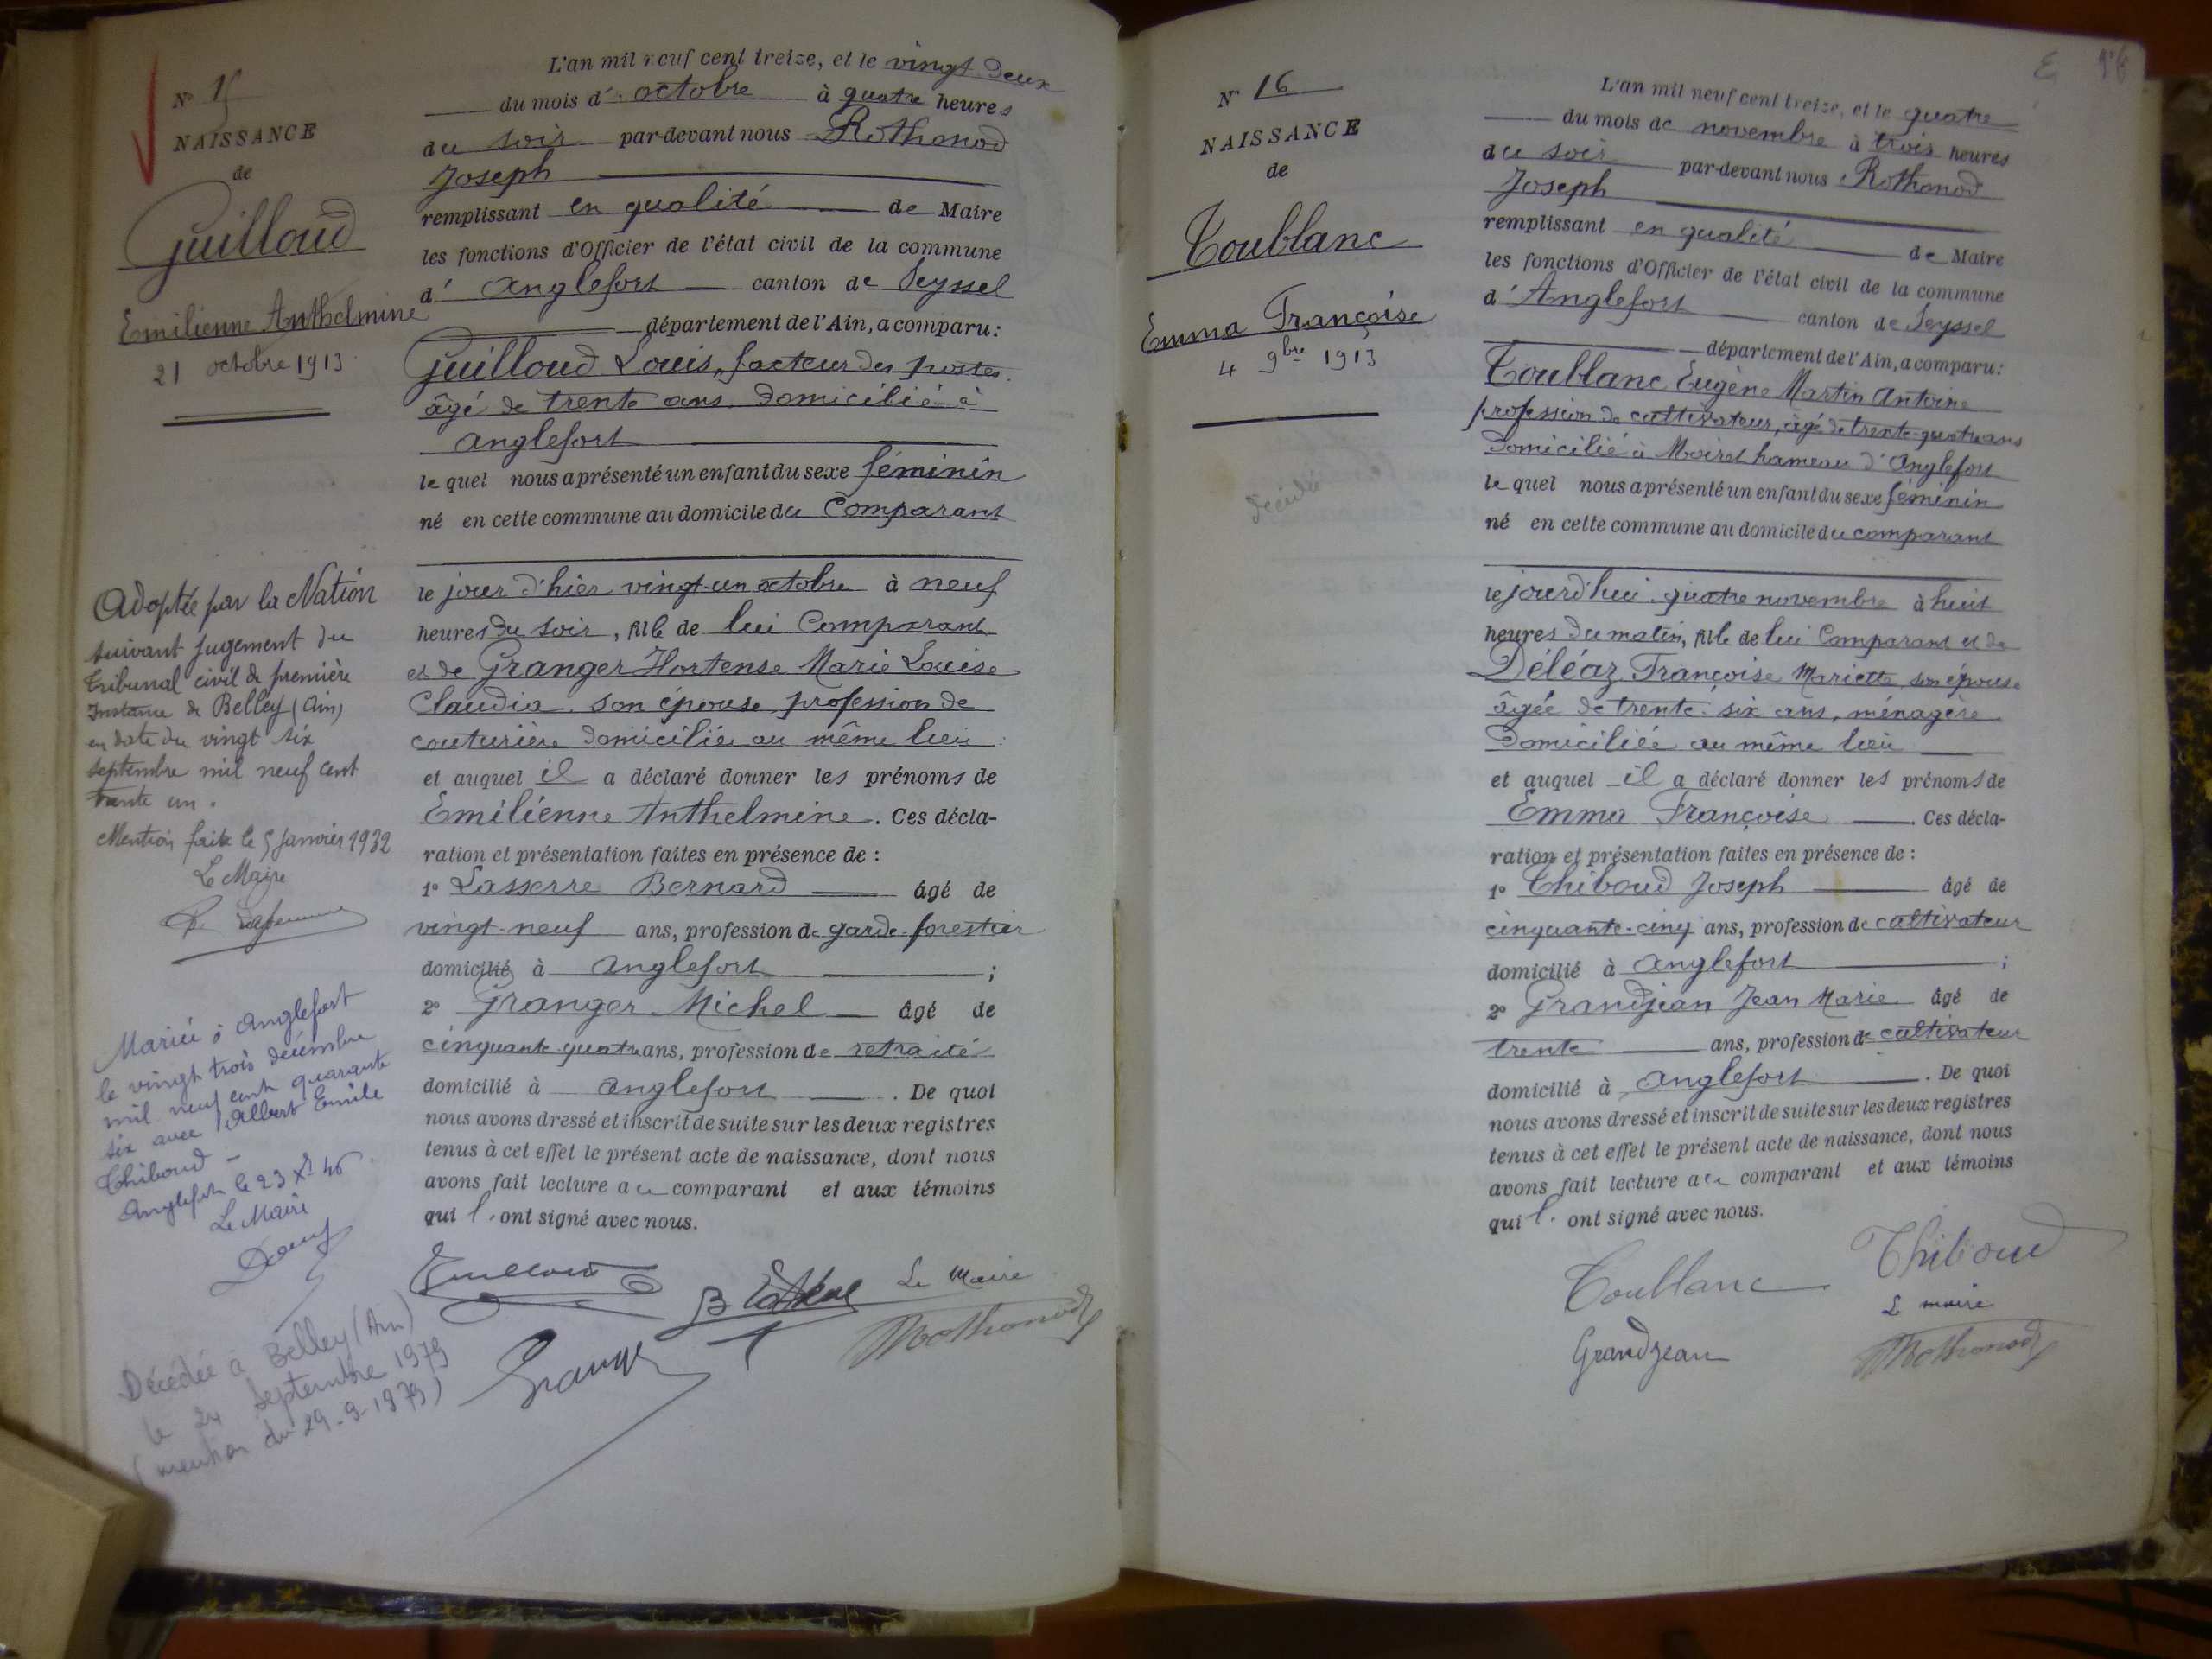 N° 15
NAISSANCE
de
Guilloud
Emilienne Anthelmine
21 octobre 1913
Adoptée par la Nation
suivant jugement du
Tribunal civil de première
Instance de Belley (Ain)
en date du vingt six
septembre mil neuf cent
trente un.
Mention faite le 5 Janvier 1932
Le Maire
Mariée à Anglefort
le vingt trois décembre
mil neuf cent quarante
six avec Albert Emile
Thiboud -
Anglefort le 23 Xbre 46
Le Maire
Décédée à Belley (Ain)
le 24 Septembre 1979
(mention du 29-9-1979)
L'an mil neuf cent treize, et le vingt deux
du mois d'octobre à quatre heures
du soir par-devant nous Rothonod
Joseph
remplissant en qualité de Maire
les fonctions d'Officier de l'état civil de la commune
d' Anglefort canton de Seyssel
département de l'Ain, a comparu:
Guilloud Louis, facteur des postes
âgé de trente ans domicilié à
Anglefort
lequel nous a présenté un enfant du sexe féminin
né en cette commune au domicile du Comparant
le jour d'hier vingt-un octobre à neuf
heures du soir, fille de lui Comparant
et de Granger Hortense Marie Louise
Claudia son épouse profession de
couturière domiciliée au même lieu
et auquel il a déclaré donner les prénoms de
Emilienne Anthelmine. Ces décla-
ration et présentation faites en présence de :
1° Lasserre Bernard âgé de
vingt-neuf ans, profession de garde-forestier
domicilié à Anglefort ;
2° Granger Michel âgé de
cinquante-quatre ans, profession de retraité
domicilié à Anglefort . De quoi
nous avons dressé et inscrit de suite sur les deux registres
tenus à cet effet le présent acte de naissance, dont nous
avons fait lecture au comparant et aux témoins
qui l'ont signé avec nous.
Guilloud
Le Maire
Granger
Rothonod
N° 16
NAISSANCE
de
Toublanc
Emma Françoise
4 9bre 1913
décédée
L'an mil neuf cent treize, et le quatre
du mois de novembre à trois heures
du soir par-devant nous Rothonod
Joseph
remplissant en qualité de Maire
les fonctions d'Officier de l'état civil de la commune
d'Anglefort canton de Seyssel
département de l'Ain, a comparu:
Toublanc Eugène Martin Antoine
profession de cultivateur, âgé de trente-quatre ans
domicilié à hameau d'Anglefort
lequel nous a présenté un enfant du sexe féminin
né en cette commune au domicile du comparant
le jourd'hui quatre novembre à huit
heures du matin, fille de lui Comparant et de
Déléaz Françoise Mariette son épouse
âgée de trente-six ans, ménagère
domiciliée au même lieu
et auquel il a déclaré donner les prénoms de
Emma Françoise . Ces décla-
ration et présentation faites en présence de :
1° Thiboud Joseph âgé de
cinquante-cinq ans, profession de cultivateur
domicilié à Anglefort ;
2° Grandjean Jean Marie âgé de
trente ans, profession de cultivateur
domicilié à Anglefort . De quoi
nous avons dressé et inscrit de suite sur les deux registres
tenus à cet effet le présent acte de naissance, dont nous
avons fait lecture au comparant et aux témoins
qui l'ont signé avec nous.
Toublanc
Thiboud
Le maire
Grandjean
Rothonod